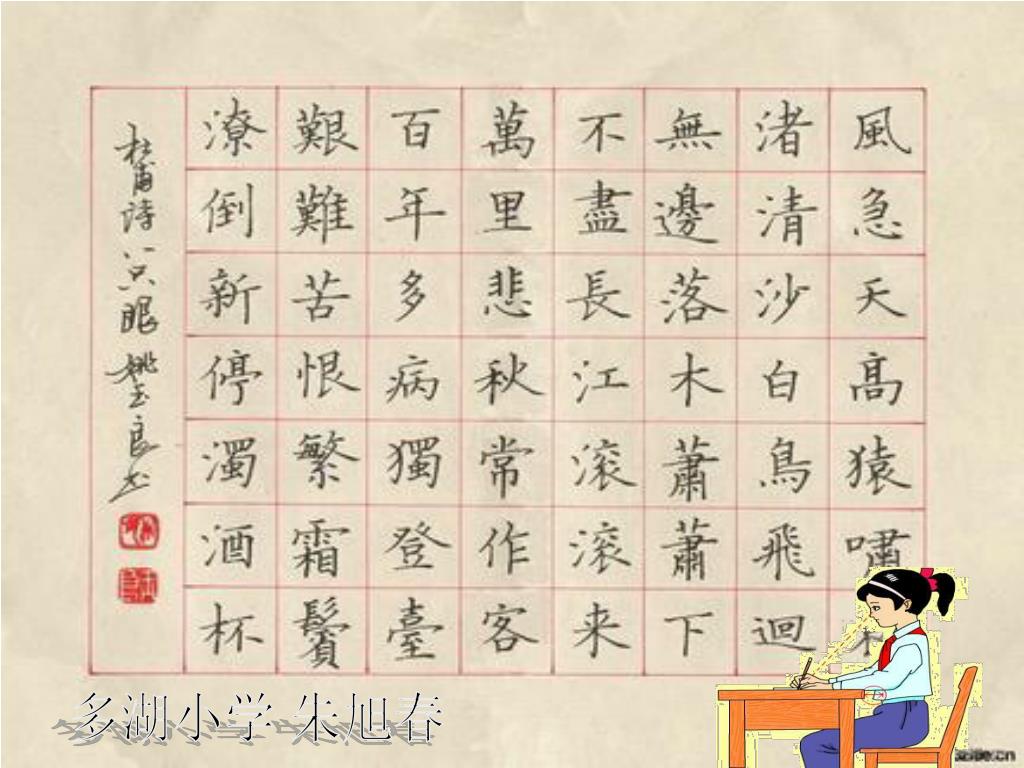 風急天高猿嘯
渚清沙白鳥飛迴
無邊落木蕭蕭下
不盡長江滚滚来
萬里悲秋常作客
百年多病獨登臺
艱難苦恨繁霜鬢
潦倒新停濁酒杯
杜甫诗 眼 姚玉良书
多湖小学 朱旭春